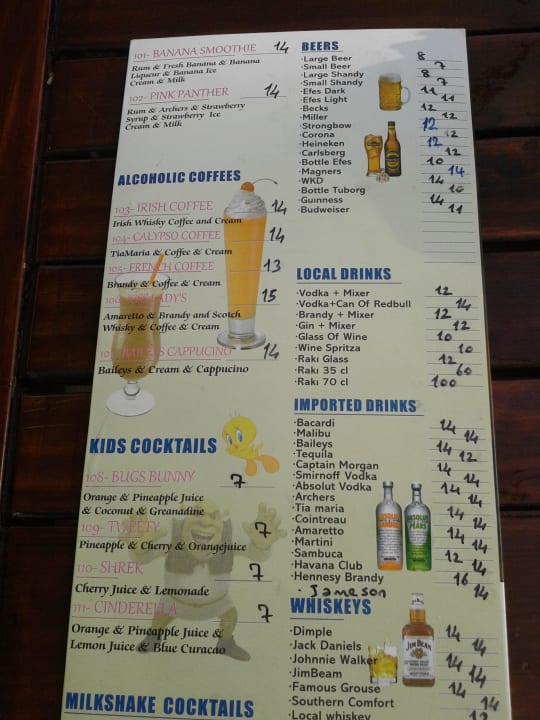 101- BANANA SMOOTHIE 14
Rum & Fresh Banana & Banana
Liqueur & Banana Ice
Cream & Milk
102- PINK PANTHER 14
Rum & Archers & Strawberry
Syrup & Strawberry Ice
Cream & Milk
ALCOHOLIC COFFEES
103- IRISH COFFEE 14
Irish Whisky Coffee and Cream
104- CALYPSO COFFEE 14
TiaMaria & Coffee & Cream
105- FRENCH COFFEE 13
Brandy & Coffee & Cream
LADY'S 15
Amaretto & Brandy and Scotch
Whisky & Coffee & Cream
BAILEYS CAPPUCINO 14
Baileys & Cream & Cappucino
KIDS COCKTAILS
108- BUGS BUNNY 7
Orange & Pineapple Juice
& Coconut & Greanadine
109- TWEETY 7
Pineapple & Cherry & Orangejuice
110- SHREK 7
Cherry Juice & Lemonade
111- CINDERELLA 7
Orange & Pineapple Juice &
Lemon Juice & Blue Curacao
MILKSHAKE COCKTAILS
BEERS
·Large Beer 8
·Small Beer 7
·Large Shandy 8
·Small Shandy 7
·Efes Dark 11
·Efes Light 11
·Becks 12
·Miller 12
·Strongbow 12
·Corona 12
·Heineken 12
·Carlsberg 12
·Bottle Efes 10
·Magners 14
·WKD 14
·Bottle Tuborg 10
·Guinness 14
·Budweiser 11
LOCAL DRINKS
·Vodka + Mixer 12
·Vodka+Can Of Redbull 14
·Brandy + Mixer 12
·Gin + Mixer 12
·Glass Of Wine 10
·Wine Spritza 10
·Rakı Glass 12
·Rakı 35 cl 60
·Rakı 70 cl 100
IMPORTED DRINKS
·Bacardi 14
·Malibu 14
·Baileys 14
·Tequila 12
·Captain Morgan 14
·Smirnoff Vodka 14
·Absolut Vodka 14
·Archers 14
·Tia maria 14
·Cointreau 14
·Amaretto 14
·Martini 14
·Sambuca 12
·Havana Club 14
·Hennesy Brandy 16
·Jameson 14
WHISKEYS
·Dimple 14
·Jack Daniels 14
·Johnnie Walker 14
·JimBeam 14
·Famous Grouse 14
·Southern Comfort 14
·Local whiskey
JIM BEAM